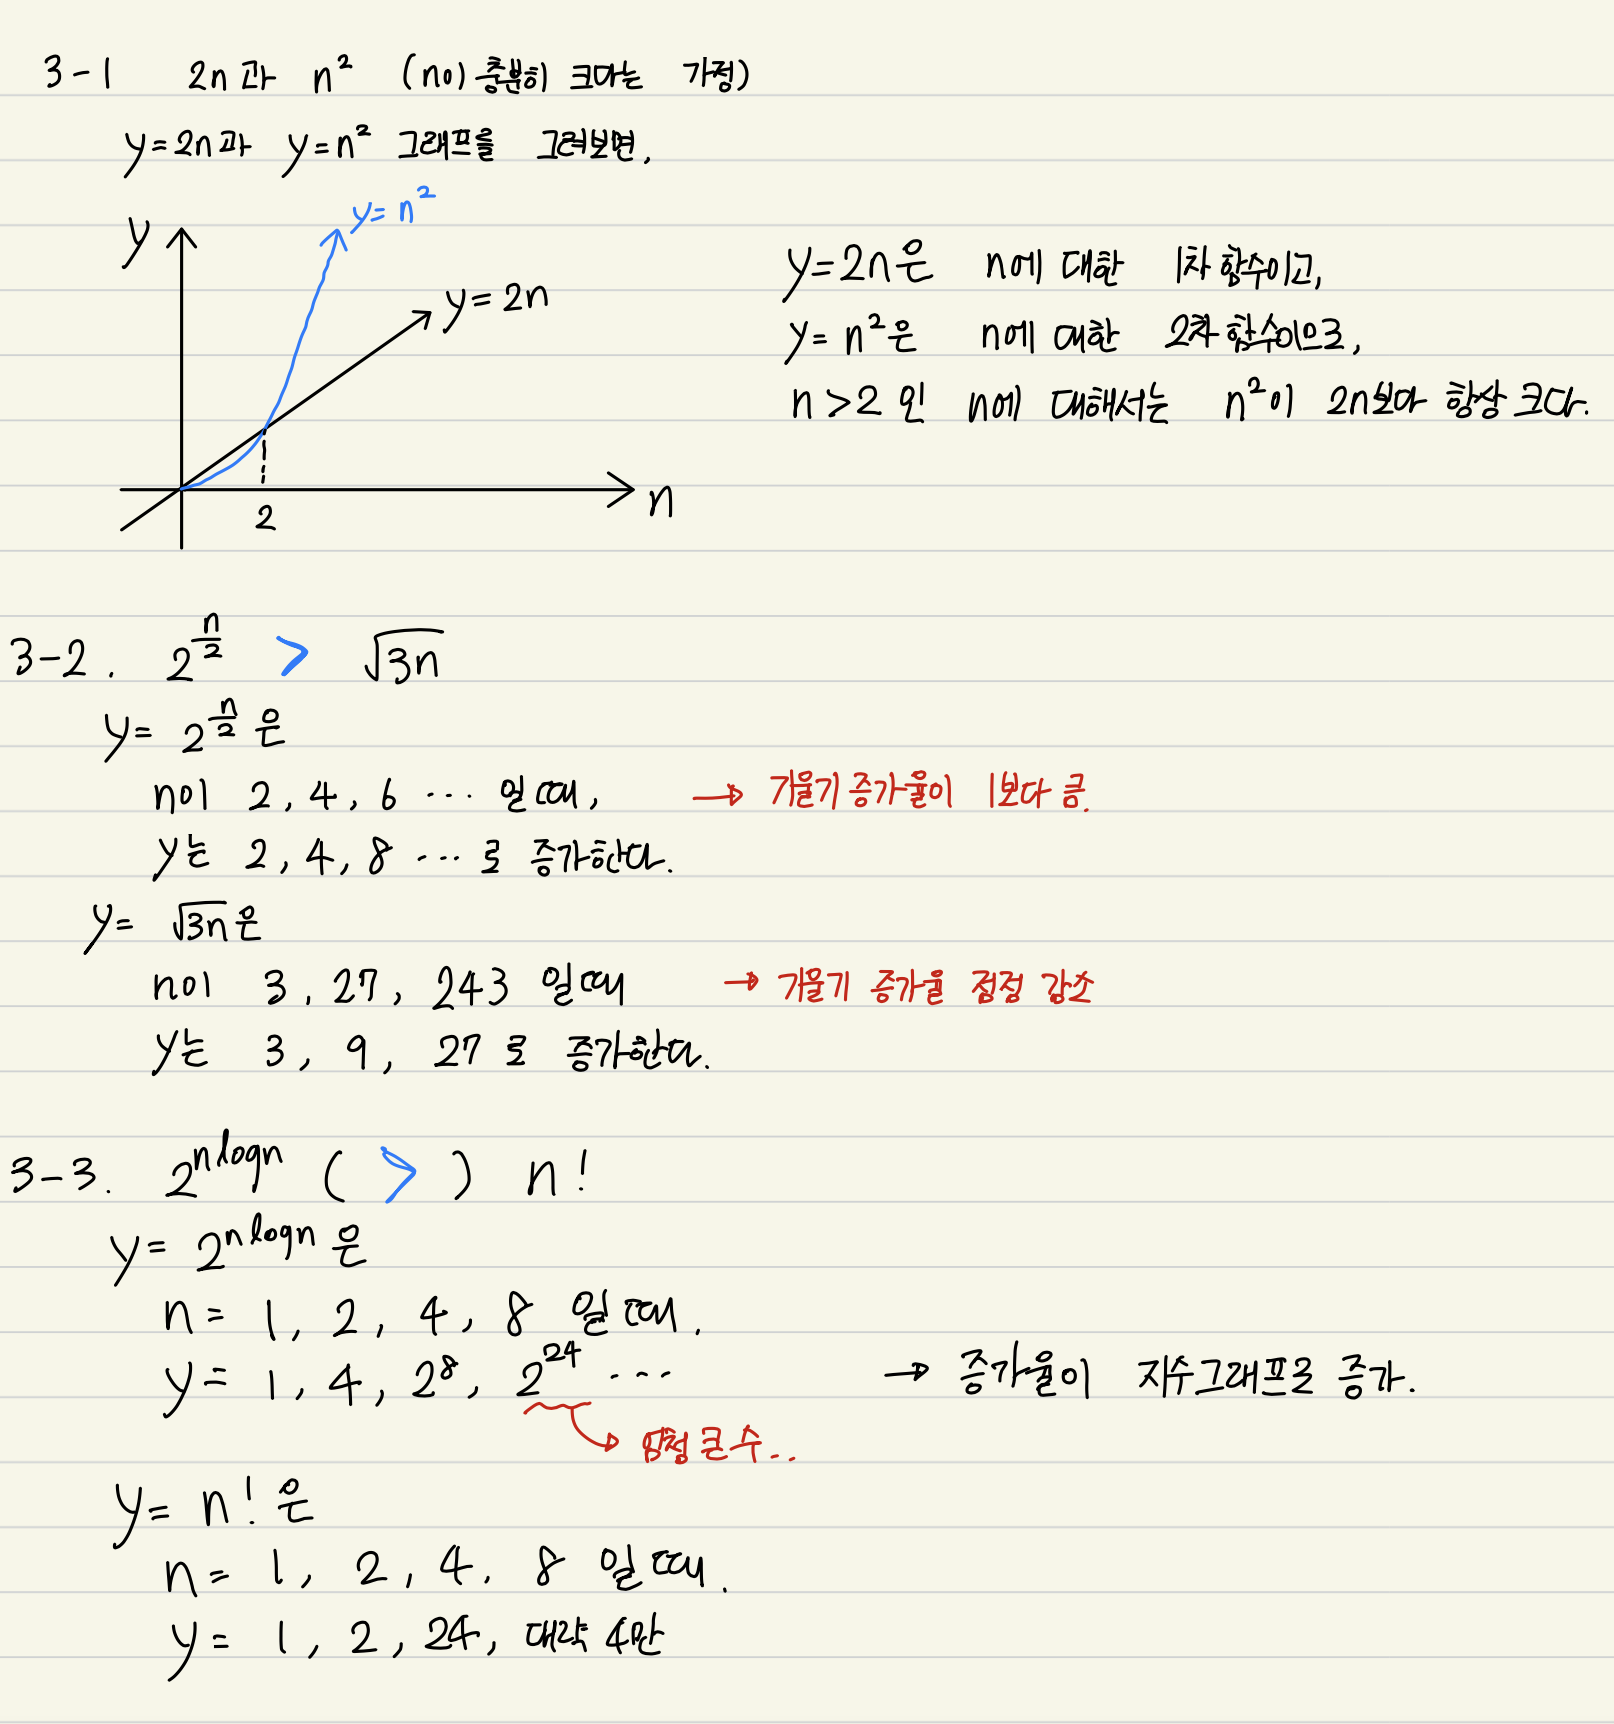 3-1 2n과 n² (n이 충분히 크다는 가정)
y=2n과 y=n² 그래프를 그려보면,
y
y=n²
y=2n
2
n
y=2n은 n에 대한 1차 함수이고,
y=n²은 n에 대한 2차 함수이므로,
n>2 인 n에 대해서는 n²이 2n보다 항상 크다.
3-2. 2^(n/2) > √3n
y= 2^(n/2) 은
n이 2, 4, 6 ... 일 때, → 기울기 증가율이 1보다 큼.
y는 2, 4, 8 ... 로 증가한다.
y= √3n은
n이 3, 27, 243 일 때 → 기울기 증가율 점점 감소
y는 3, 9, 27 로 증가한다.
3-3. 2^(nlogn) ( > ) n!
y= 2^(nlogn) 은
n= 1, 2, 4, 8 일 때.
y= 1, 4, 2⁸, 2²⁴ ... → 증가율이 지수그래프로 증가.
엄청 큰 수..
y= n! 은
n= 1, 2, 4, 8 일 때.
y= 1, 2, 24, 대략 4만